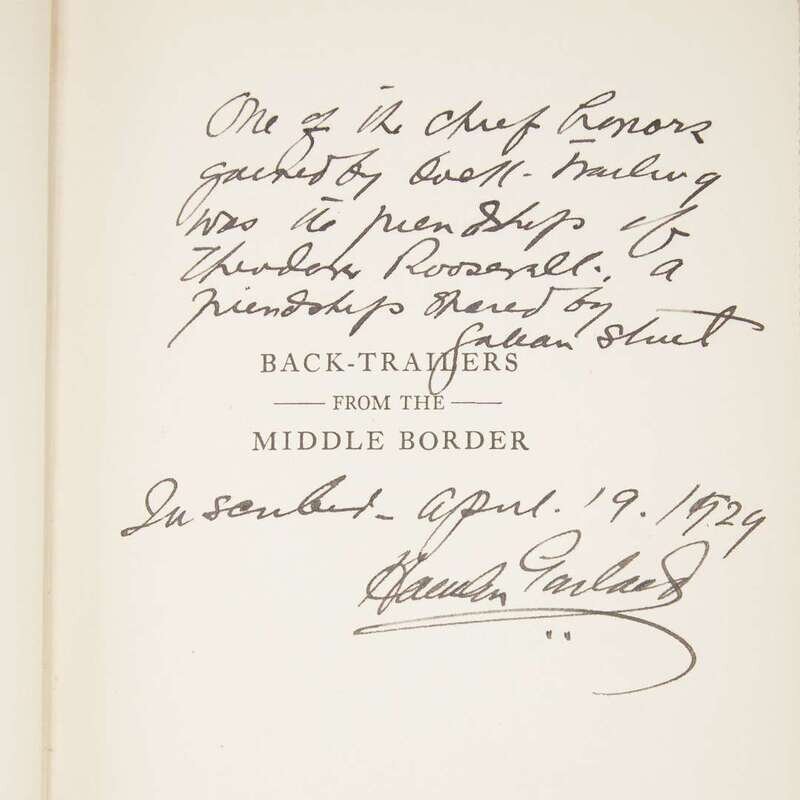 One of the chief honors
gained by back-trailing
was the friendship of
Theodore Roosevelt, a
friendship shared by
BACK-TRAILERS
FROM THE
MIDDLE BORDER
Inscribed - April. 19. 1929
Hamlin Garland